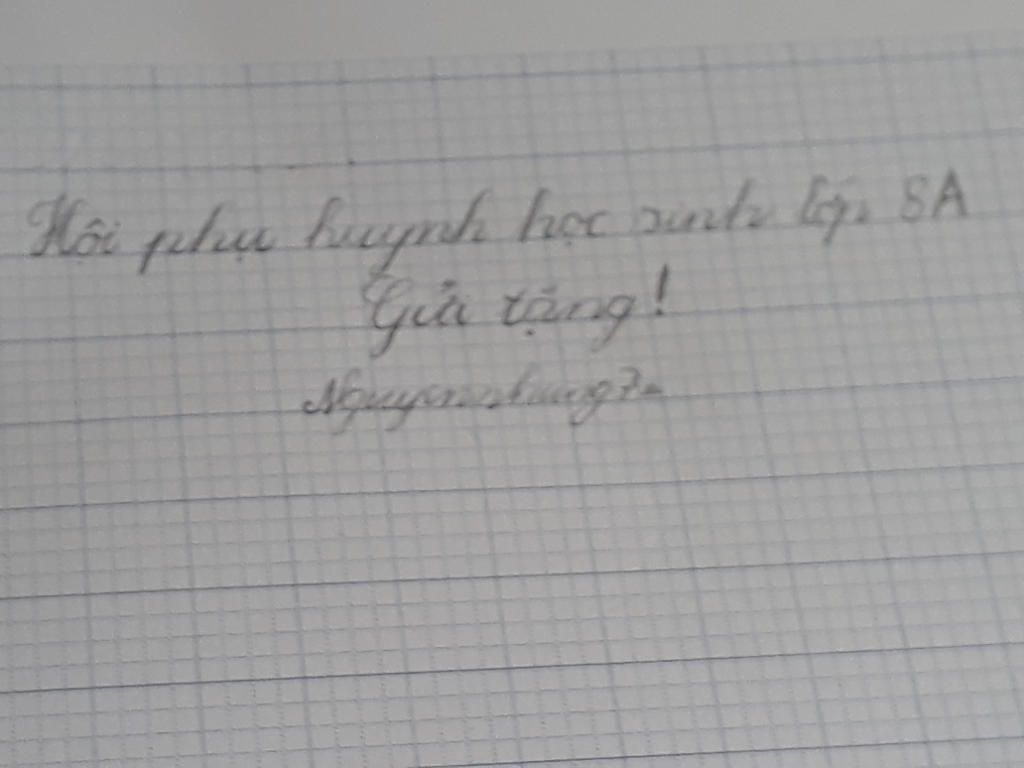 Hội phụ huynh học sinh lớp 5A
Gửi tặng!